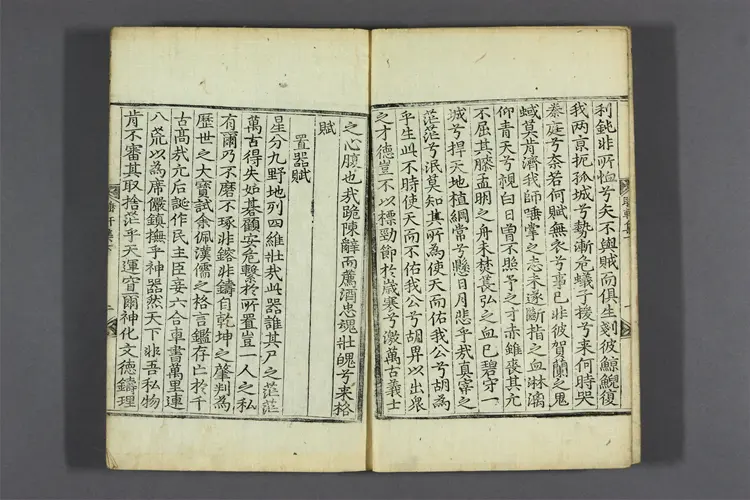 利鈍非所恤兮矢不與賊而俱生剗彼鯨鯢復
我两京扼孤城兮勢漸危蟻子援兮来何時哭
秦庭兮奈若何賦無衣兮事已非彼賀蘭之鬼
蜮莫肯濟我師唾掌之志未遂斷指之血淋漓
仰青天兮覩白日曾不照予之才赤雖喪其元
不屈其膝孟明之舟未焚萇弘之血已碧守一
城兮捍天地植綱常兮懸日月悲乎哉真宰之
茫茫兮泯莫知其所為使天而佑我公兮胡為
乎生此不時使天而不佑我公兮胡畀以出衆
之才德豈不以標勁節於歲寒兮激萬古義士
之心腹也哉跪陳辭而薦酒忠魂壯魄兮来格
賦
置器賦
星分九野地列四維壯哉此器誰其尸之茫茫
萬古得失如碁顧安危繫於所置豈一人之私
有爾乃不磨不琢非鎔非鑄自乾坤之肇判為
歷世之大寳試余佩漢儒之格言鑑存亡於千
古高哉元后誕作民主臣妾六合車書萬里連
八荒以為席儼鎮撫乎神器然天下非吾私物
肯不審其取捨茫乎天運窅爾神化文德鑄理